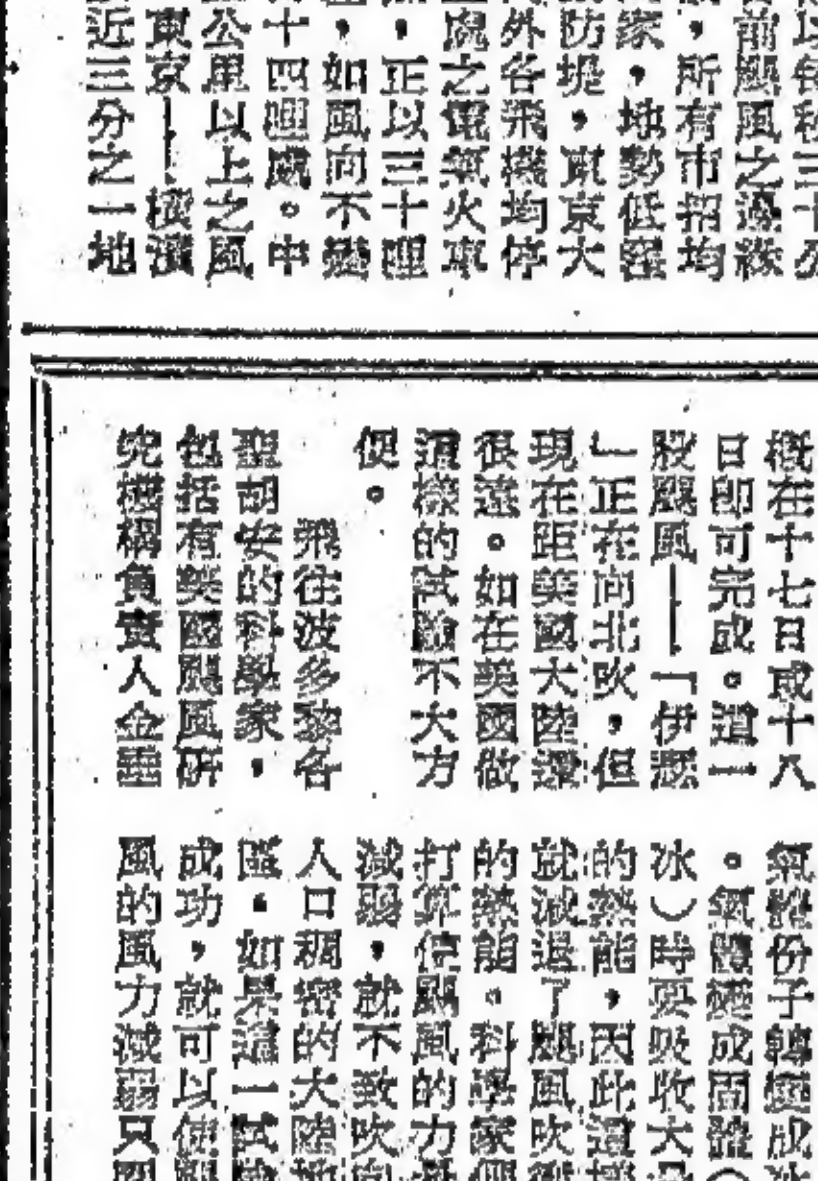 以每秒三十公
前颶風之邊緣
，所有市招均
家，地勢低窪
防堤，東京大
外各飛機均停
處之電氣火車
，正以三十哩
，如風向不變
十四哩處。中
公里以上之風
東京——橫濱
近三分之一地
概在十七日或十八
日卽可完成。這一
股颶風——「伊瑟
」正在向北吹，但
現在距美國大陸還
很遠。如在美國做
這樣的試驗不大方
便。
飛往波多黎各
聖胡安的科學家，
包括有美國颶風研
究機構負責人金
氣體份子轉變成冰
。氣體變成固體（
冰）時要吸收大
的熱能，因此這
就減退了颶風吹
的熱能。科學家
打算使颶風的力
減弱，就不致吹
人口稠密的大陸地
區。如果這一試
成功，就可以使
風的風力減弱只